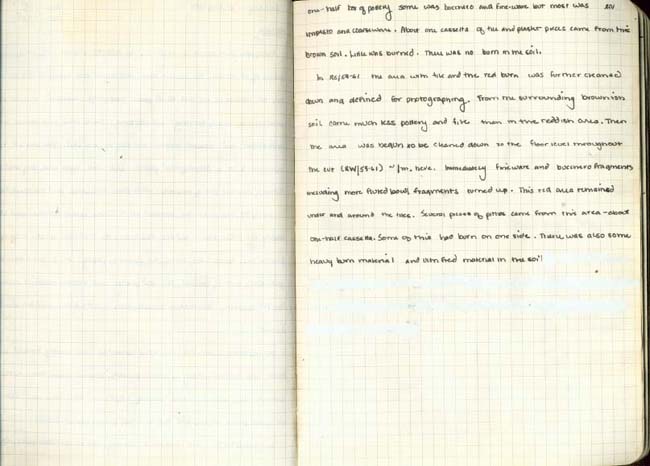 one-half box of pottery some was bucchero and fineware but most was
impasto and coarseware. About one cassetta of tile and plaster pieces came from this
brown soil. Little was burned. There was no burn in the soil.
In the area with tile and the red burn was further cleaned
down and defined for photographing. From the surrounding brownish
soil came much less pottery and tile than in the reddish area. Then
the area was begun to be cleaned down to the floor level throughout
the cut (RW/59-61) ~ 1m. here. Immediately fineware and bucchero fragments
including more fluted bowl fragments turned up. This red area remained
under and around the tiles. Several pieces of pithos came from this area - about
one-half cassetta. Some of this had burn on one side. There was also some
heavy burn material and vitrified material in the soil